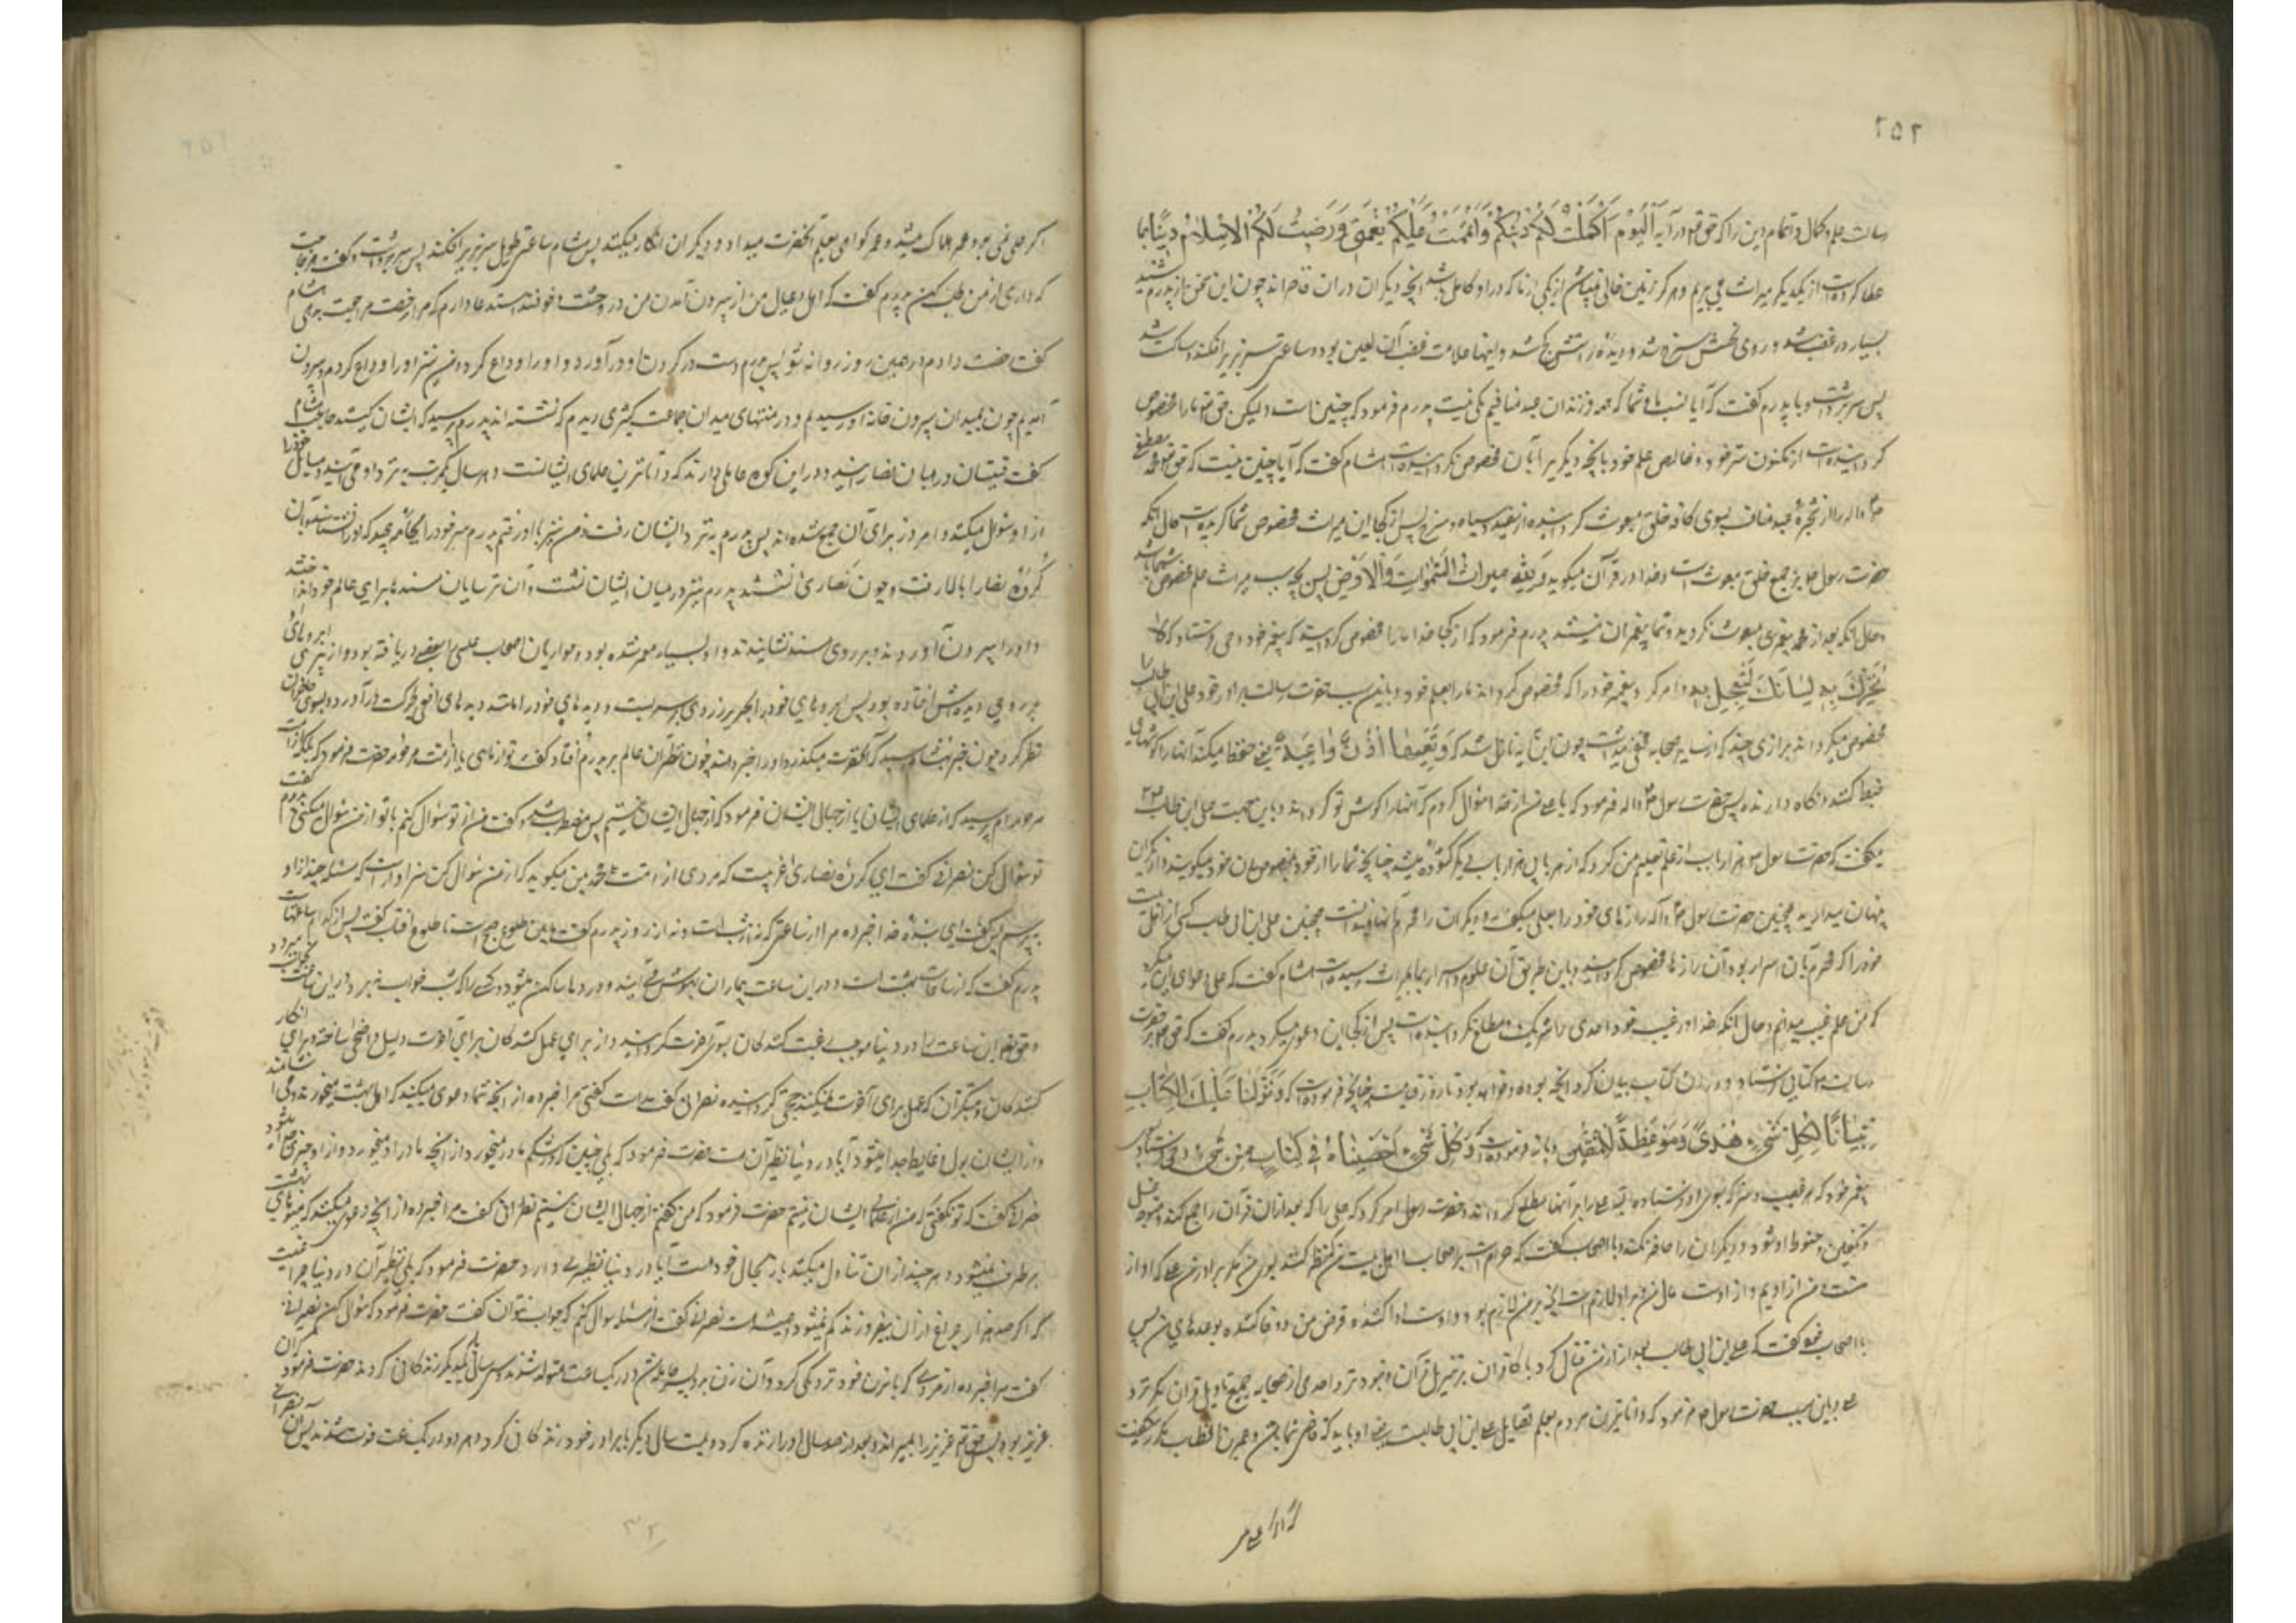 ۲۵۲
رسالت علم و کمال و اتمام دین را که حق تع در آیه اَلْیَوْمَ اَکْمَلْتُ لَکُمْ دینَکُمْ وَاَتْمَمْتُ عَلَیْکُمْ نِعْمَتی وَرَضیتُ لَکُمُ الْاِسْلامَ دینًا بما
عطا کرده است از یکدیکر میراث می بریم و هرکز زمین خالی نمیباشد از یکی از ما که در او کامل باشد انچه دیکران در ان قاصراند چون این سخن از پدرم شنید
بسیار در غضب شد و روی نحسش سرخ شد و دیده راستش کج شد و اینها علامت غضب آن لعین بود و ساعتی سر بزیر افکند و ساکت شد
پس سر برداشت و با پدرم کفت که آیا نسب ما و شما که همه فرزندان عبد منافیم یکی نیست پدرم فرمود که چنین است ولیکن حق تع ما را مخصوص
کردانیده است از مکنون سر خود و خالص علم خود بانچه دیکریرا بآن مخصوص نکردانیده است هشام کفت که آیا چنین نیست که حق تع محمد مصطفی
ص و اله را از شجره عبد مناف بسوی کافه خلق مبعوث کردانیده از سفید و سیاه و سرخ پس از کجا این میراث مخصوص شما کردیده است و حال انکه
حضرت رسول ص بر جمیع خلق مبعوث است و خدا در قرآن میکوید وَلِلّهِ میراثُ السَّمواتِ وَالْاَرْضِ پس بچه سبب میراث علم مخصوص شما شد
و حال انکه بعد از محمد پیغمبری مبعوث نکردید و شما پیغمبران نیستید پدرم فرمود که از کجا خدا ما را مخصوص کردانیده که به پیغمبر خود وحی فرستاد که لا
تُحَرِّکْ بِهِ لِسانَکَ لِتَعْجَلَ بِهِ و امر کرد پیغمبر خود را که مخصوص کرداند ما را بعلم خود و باین سبب حضرت رسالت برادر خود علی ابن ابی طالب را
مخصوص میکردانید برازی چند که از سایر صحابه مخفی میداشت چون این آیه نازل شد که وَتَعِیَها اُذُنٌ واعِیَةٌ یعنی حفظ میکند آنها را کوشهای
ضبط کننده و نکاه دارنده پس حضرت رسول ص و اله فرمود که یا علی من از خدا سؤال کردم که آنها را کوش تو کرداند و باین جهت علی ابن طالب ع
میکفت که حضرت رسول ص هزار باب از علم تعلیم من کرد که از هر بابی هزار باب دیکر کشوده میشد چنانچه شما رازهای خود بمخصوصان خود میکویید و از دیکران
پنهان میدارید همچنین حضرت رسول ص و آله رازهای خود را بعلی میکفت و دیکران را محرم آنها نمیدانست همچنین علی ابن ابی طالب کسی از اهل بیت
خود را که محرم آن اسرار بود بآن رازها مخصوص کردانید و باین طریق آن علوم و اسرار بما بمیراث رسیده است هشام کفت که علی دعوای این میکرد
که من علم غیب میدانم و حال انکه خدا در غیب خود احدی را شریک و مطلع نکردانیده است پس از کجا این دعوی میکرد پدرم کفت که حق تع بر حضرت
رسالت ص کتابی فرستاد و در ان کتاب بیان کرد انچه بوده و خواهد بود تا روز قیامت چنانچه فرموده است که وَنَزَّلْنا عَلَیْکَ الْکِتابَ
تِبْیانًا لِکُلِّ شَیْءٍ وَهُدیً وَمَوْعِظَةً لِلْمُتَّقینَ و باز فرموده است وَکُلَّ شَیْءٍ اَحْصَیْناهُ فی
پیغمبر خود که هر غیب و سری که بسوی او فرستاده علی را بر آنها مطلع کرداند و حضرت رسول امر کرد که علی را که بعد از ان قرآن را جمع کند و متوجه غسل
و تکفین و حنوط او شود و دیکران را حاضر نکند و با اصحاب کفت که حرام است بر اصحاب و اهل بیت من که نظر کنند بسوی من مکر برادر من علی که او از
منست و من از اویم و از اوست مال من و بر او لازم است انچه بر من لازم بود و اوست ادا کننده قرض من و وفا کننده بوعدهای من پس
با اصحاب خود کفت که علی ابن ابی طالب بعد از من قتال کرد با کافران بر تنزیل قرآن و نبود نزد احدی از صحابه جمیع تاویل قران مکر نزد
علی و باین سبب حضرت رسول ص فرمود که داناترین مردم بعلم قضا علی ابن ابی طالبست یعنی او باید که قاضی شما باشد و عمر بن الخطاب مکرر میکفت
که اگر علی
اکر علی نمی بود عمر هلاک میشد و عمر کواهی بعلم آنحضرت میداد و دیکران انکار میکنند پس هشام ساعتی طویل سر بزیر افکند پس سر برداشت و کفت هر حاجت
که داری از من طلب کن پدرم کفت که اهل و عیال من از بیرون آمدن من در وحشت و خوفند استدعا دارم که مرا رخصت مراجعت بدهی هشام
کفت رخصت دادم در همین روز روانه شو پس پدرم دست در کردن او در آورد و او را وداع کرد و من نیز او را وداع کردم و بیرون
آمدیم چون بمیدان بیرون خانه او رسیدیم و در منتهای میدان جماعت کثیری دیدم که نشسته اند پدرم پرسید که ایشان کیستند حاجب هشام
کفت قسیسان و رهبانان نصارایند و در این کوه عالمی دارند که داناترین علمای ایشانست و هر سال یکمرتبه بنزد او می آیند و مسایل خود را
از او سؤال میکنند و امروز برای آن جمع شده اند پس پدرم بنزد ایشان رفت و من نیز با او رفتم پدرم سر خود را بجامه پیچید که او را نشناسند و بآن
کروه نصارا بالا رفت و چون نصاری نشستند پدرم نیز در میان ایشان نشست و آن ترسایان مسندها برای عالم خود انداختند
و او را بیرون آوردند و بر روی مسند نشانیدند و او بسیار معمر شده بود و حواریان اصحاب عیسی را بعضی دریافته بود و از پیری ابروهای
بر روی دیده اش افتاده بود پس ابروهای خود را بحریر زردی بر سر بست و دیدهای خود را مانند دیدهای افعی بحرکت در آورد و بسوی حاضران
نظر کرد و چون خبر بهشام رسید که آنحضرت
مرحومه ام پرسید که از علمای ایشانی یا از جهال ایشان فرمود که از جهال ایشان نیستم پس مضطرب شد و کفت من از تو سؤال کنم یا تو از من سؤال میکنی پدرم کفت
تو سؤال کن نصرانی کفت ای کروه نصاری غریبست که مردی از امت محمد بمن میکوید که از من سؤال کن سزاوار است که مسئله چند از او
بپرسم پس کفت ای بنده خدا خبر ده مرا از ساعتی که نه از شب است و نه از روز پدرم کفت مابین طلوع صبح است تا طلوع افتاب کفت پس از کدام ساعتهاست
پدرم کفت که از ساعات بهشت است و در این ساعت بیماران بهوش می آیند و دردها ساکن میشود و کسی را که شب خواب نبرد در این ساعت بخواب میرود
و حق تع این ساعت را در دنیا موجب رغبت رغبت کنندکان بسوی آخرت کردانیده و از برای عمل کنندکان برای آخرت دلیل واضحی ساخته و برای انکار
کنندکان و متکبران که عمل برای آخرت نمیکنند حجتی کردانیده نصرانی کفت راست کفتی مرا خبر ده از انچه شما دعوی میکنید که اهل بهشت میخورند و می آشامند
و از ایشان بول و غایط جدا نمیشود آیا در دنیا نظیر آن هست حضرت فرمود که بلی جنین که در شکم مادر میخورد از انچه مادر او میخورد و از او چیزی جدا نمیشود
نصرانی کفت که تو نکفتی که من از علمای ایشان نیستم حضرت فرمود که من کفتم از جهال ایشان نیستم نصرانی کفت مرا خبر ده از انچه دعوی میکنید که میوهای بهشت
برطرف نمیشود و هر چند از ان تناول میکنند باز بحال خود هست آیا در دنیا نظیری دارد حضرت فرمود که بلی نظیر آن در دنیا چراغیست
که اکر صد هزار چراغ از ان بیفروزند کم نمیشود و همیشه هست نصرانی کفت از تو مسئله سؤال کنم که جواب نتوان کفت حضرت فرمود که سؤال کن نصرانی
کفت مرا خبر ده از مردی که با زن خود نزدیکی کرد و آن زن بدو پسر حامله شد و هر دو در یک ساعت متولد شدند
عزیر بود پس حق تع عزیر را بمیراند و بعد از صد سال او را زنده کرد و بیست سال دیکر با برادر خود زندکانی کرد و هر دو در یک ساعت فوت شدند پس آن نصرانی